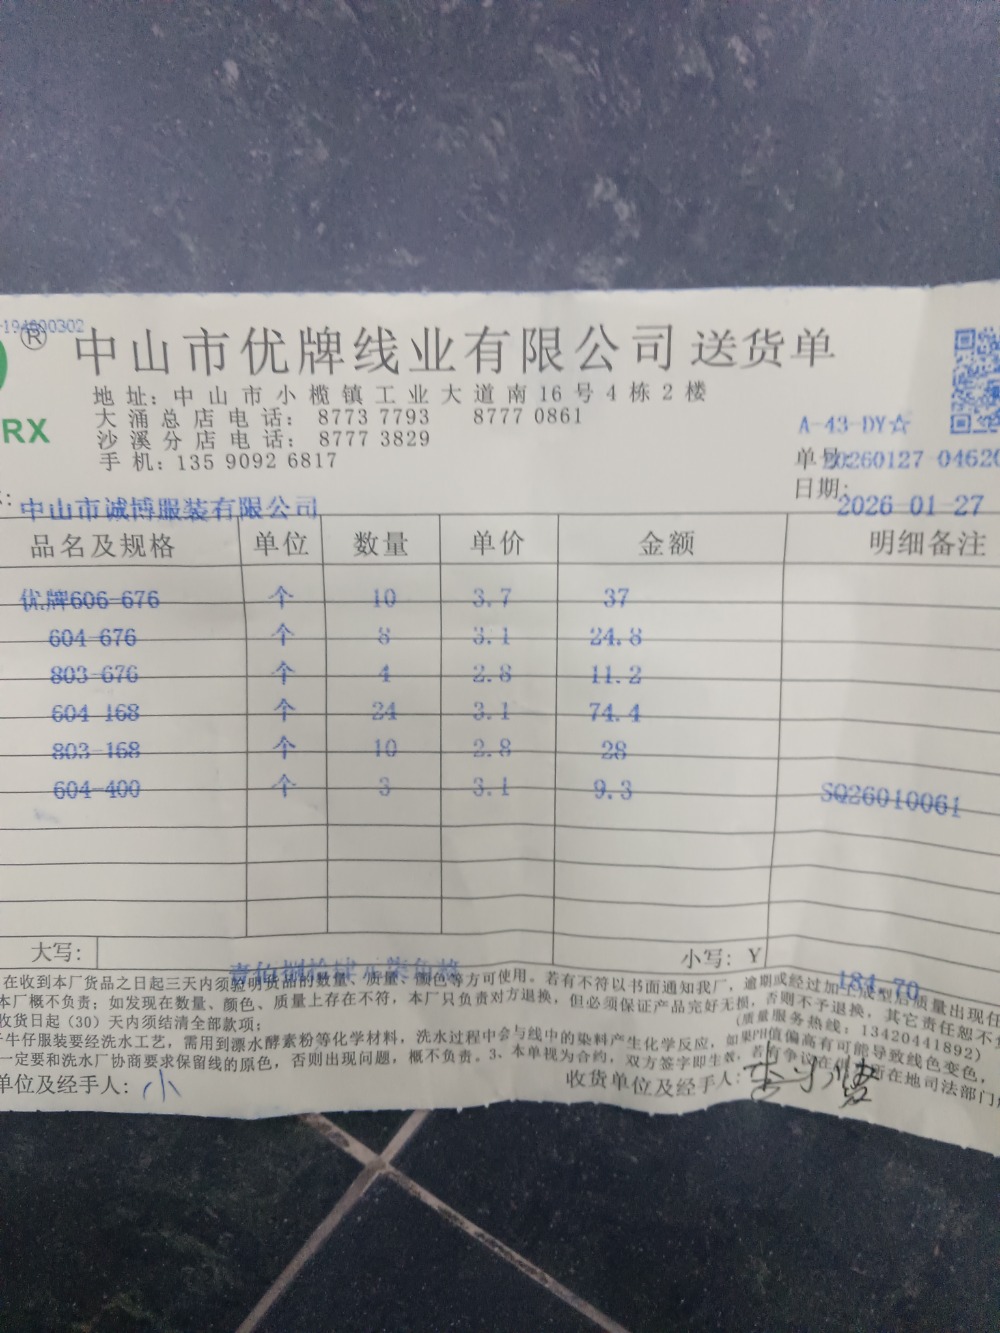 194600302
®
RX
中山市优牌线业有限公司送货单
地址：中山市小榄镇工业大道南16号4栋2楼
大涌总店电话： 8773 7793 8777 0861
沙溪分店电话： 8777 3829
手机：135 9092 6817
A-43-DY☆
单号: 20260127 04620
日期: 2026-01-27
中山市诚博服装有限公司
品名及规格 单位 数量 单价 金额 明细备注
优牌606-676 个 10 3.7 37
604-676 个 8 3.1 24.8
803-676 个 4 2.8 11.2
604-168 个 24 3.1 74.4
803-168 个 10 2.8 28
604-400 个 3 3.1 9.3 SQ26010061
大写： 壹佰捌拾肆 柒角 小写：Y 184.70
在收到本厂货品之日起三天内须验明货品的数量、质量、颜色等方可使用。若有不符以书面通知我厂，逾期或经过加工成型后质量出现任
本厂概不负责；如发现在数量、颜色、质量上存在不符，本厂只负责对方退换，但必须保证产品完好无损，否则不予退换，其它责任恕不
收货日起（30）天内须结清全部款项；
(质量服务热线：13420441892)
牛仔服装要经洗水工艺，需用到漂水酵素粉等化学材料，洗水过程中会与线中的染料产生化学反应，如果PH值偏高有可能导致线色变色，
一定要和洗水厂协商要求保留线的原色，否则出现问题，概不负责。3、本单视为合约，双方签字即生效，若有争议 所在地司法部门
单位及经手人： 小
收货单位及经手人：